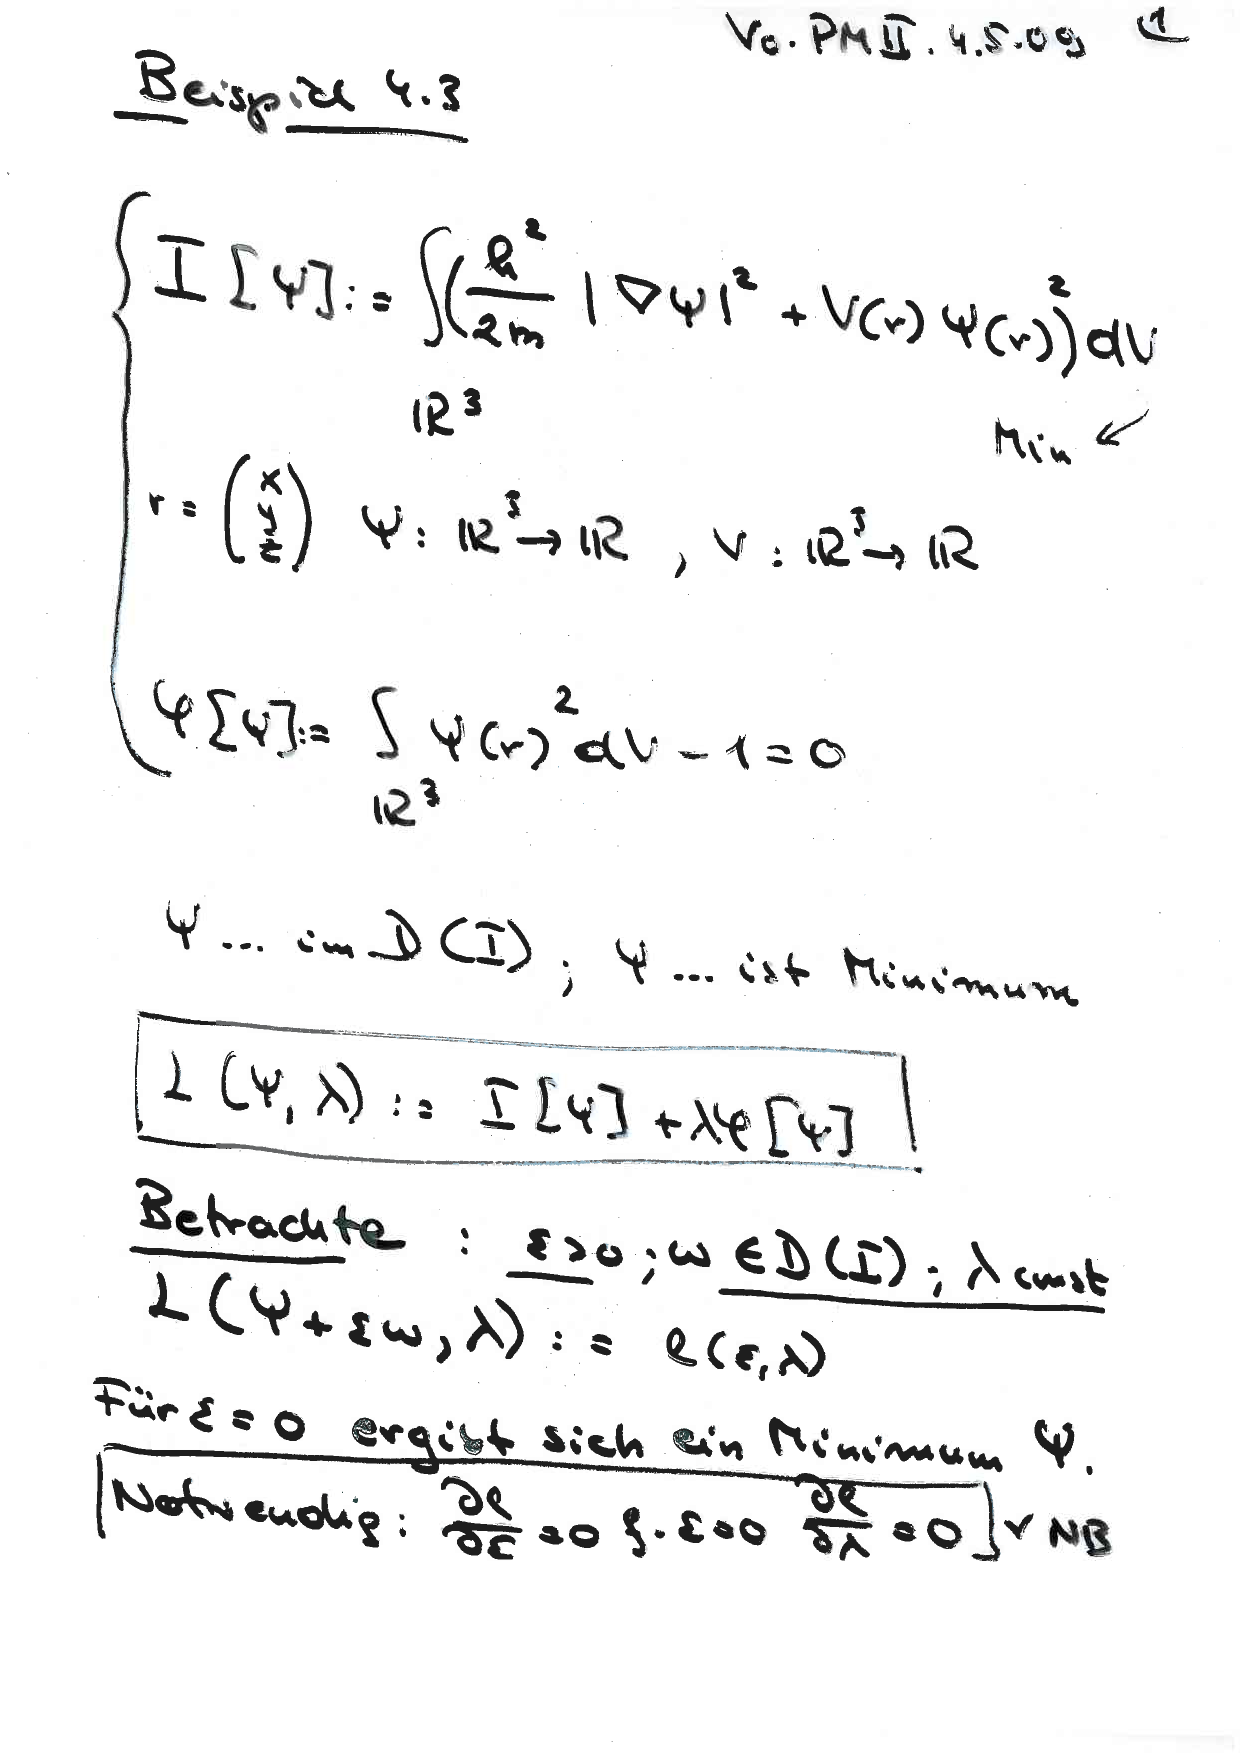 Vo. PM II. 4.5.09 1
Beispiel 4.3
I[Ψ] := ∫(ℏ²/2m |∇Ψ|² + V(r) Ψ(r)²) dV
ℝ³
Min ↙
r = (x y z) Ψ: ℝ³ → ℝ, V: ℝ³ → ℝ
φ[Ψ] := ∫ Ψ(r)² dV - 1 = 0
ℝ³
Ψ ... im D(I); Ψ ... ist Minimum
L(Ψ, λ) := I[Ψ] + λφ[Ψ]
Betrachte : ε>0; ω ∈ D(I); λ const
L(Ψ + εω, λ) := ℓ(ε, λ)
Für ε = 0 ergibt sich ein Minimum Ψ.
Notwendig: ∂ℓ/∂ε = 0 f. ε=0 ∂ℓ/∂λ = 0 v NB